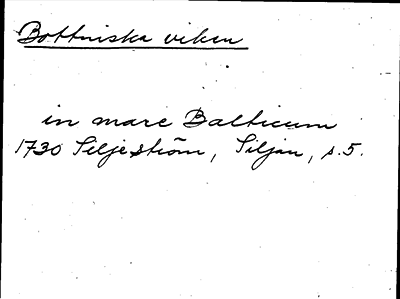 Bottniska viken
in mare Balticum
1730 Siljeström, Siljan, s.5.